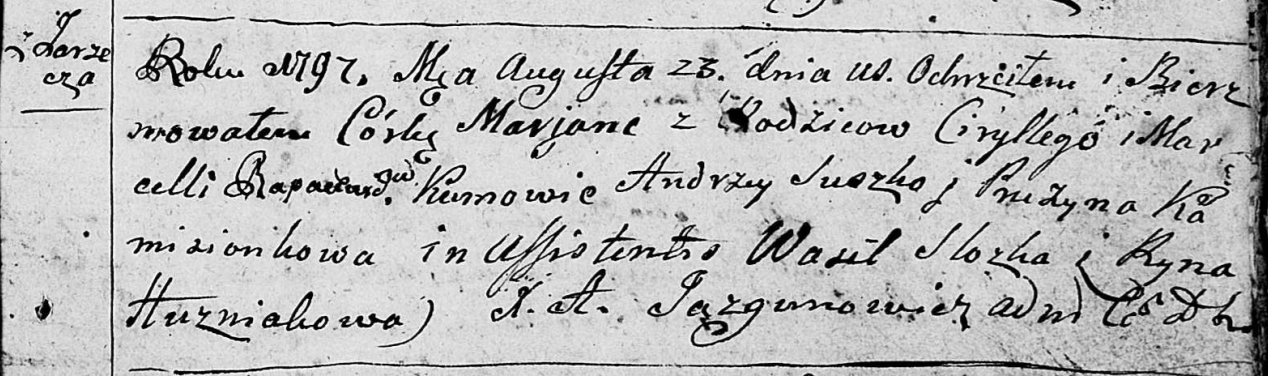 z Zarze
cza
Roku 1797. Mca Augusta 23. dnia us. Ochrzciłem i Bierz
mowałem Córkę Marjanę z Rodzicow Ciryllego i Mar
celli Kumowie Andrzey Suszko j Pruzyna Ka
misionkowa in Assistentes Wasil Slozka j Ryna
Huzniakowa) J. A. Jazgunowicz adm